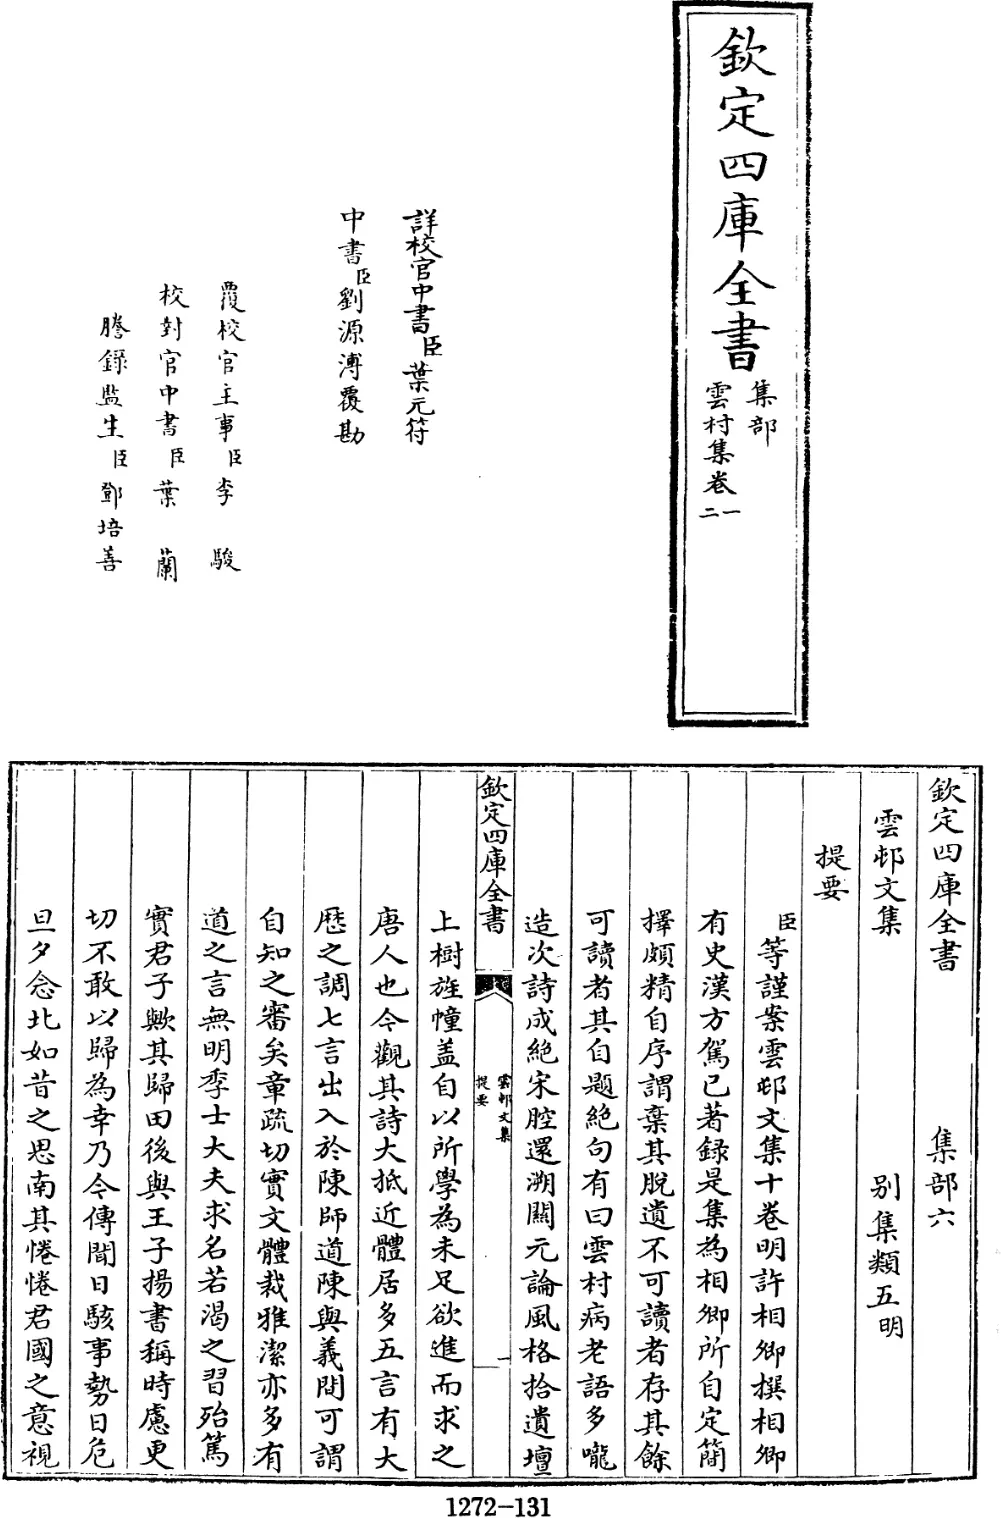 欽定四庫全書
集部
雲村集卷一二
詳校官中書臣葉元符
中書臣劉源溥覆勘
覆校官主事臣李駿
校對官中書臣葉蘭
謄錄監生臣鄧培善
欽定四庫全書　集部六
雲邨文集　别集類五明
提要
臣等謹案雲邨文集十卷明許相卿撰相卿
有史漢方駕已著録是集為相卿所自定簡
擇頗精自序謂棄其脱遺不可讀者存其餘
可讀者其自題絶句有曰雲村病老語多嚨
造次詩成絶宋腔還溯開元論風格拾遺壇
欽定四庫全書
雲邨文集
提要
一
上樹旌幢盖自以所學為未足欲進而求之
唐人也今觀其詩大抵近體居多五言有大
歴之調七言出入於陳師道陳與義間可謂
自知之審矣章疏切實文體裁雅潔亦多有
道之言無明季士大夫求名若渇之習殆篤
實君子歟其歸田後與王子揚書稱時慮更
切不敢以歸為幸乃今傳聞日駭事勢日危
旦夕念北如昔之思南其惓惓君國之意視
1272-131